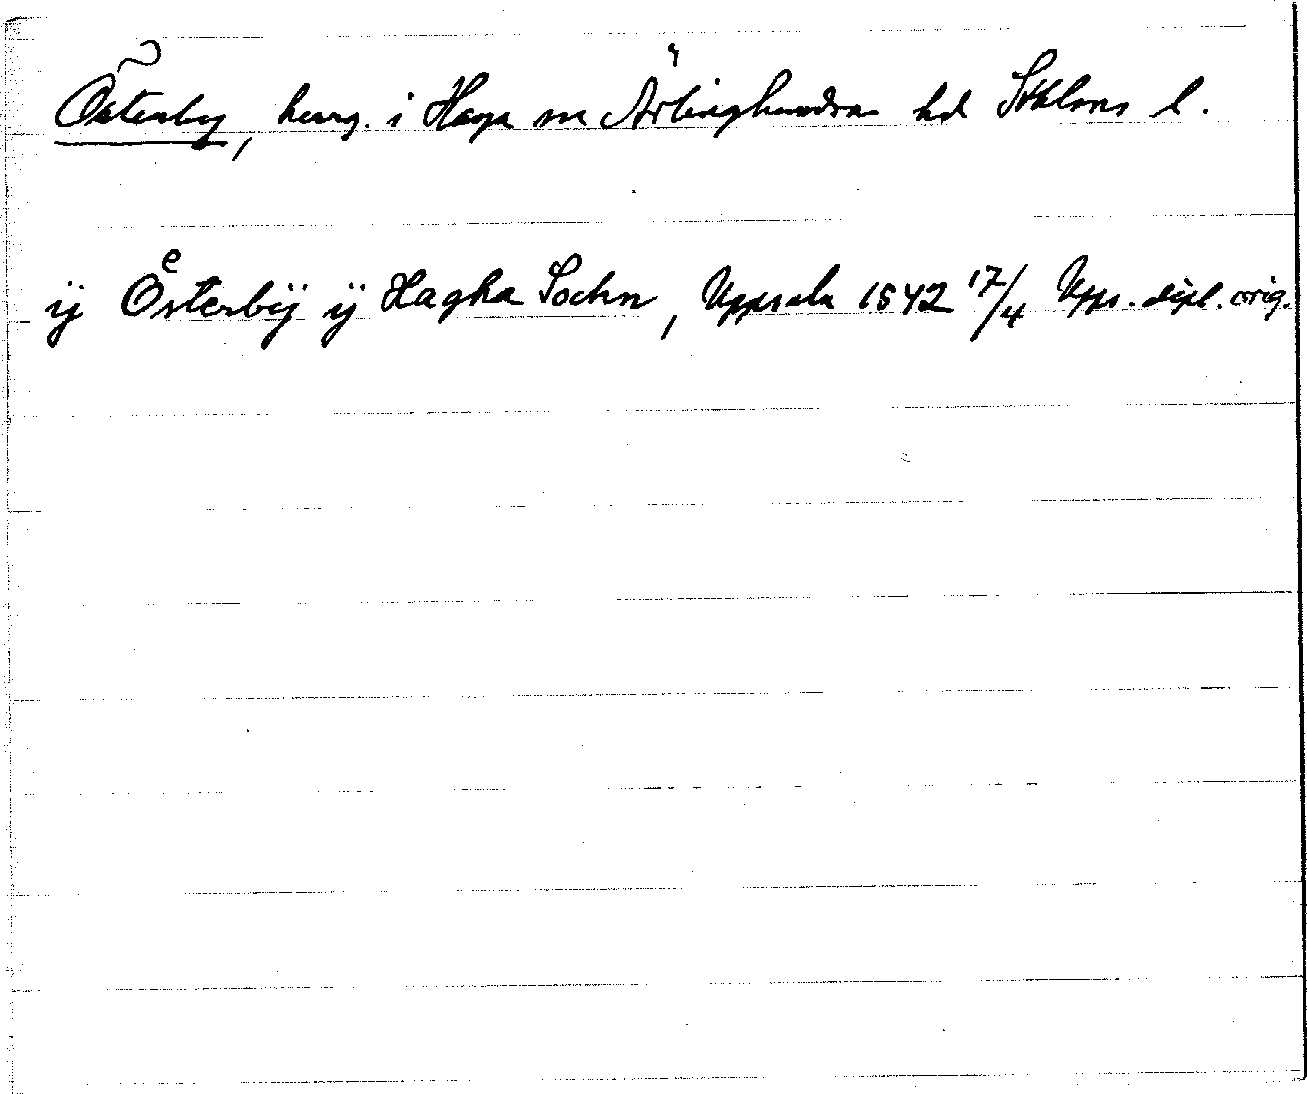 Österby, herrg. i Haga sn Ärlinghundra hd Sthlms l.
ij Oͤsterbÿ ÿ Hagha Sochn, Uppsala 1542 17/4 Upps. dipl. orig.